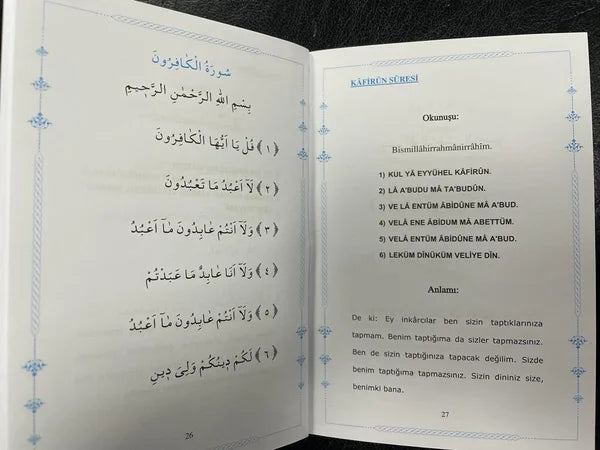 سُورَةُ الْكَافِرُونَ
بِسْمِ اللهِ الرَّحْمٰنِ الرَّحٖيمِ
﴿١﴾ قُلْ يَا اَيُّهَا الْكَافِرُونَ
﴿٢﴾ لَٓا اَعْبُدُ مَا تَعْبُدُونَ
﴿٣﴾ وَلَٓا اَنْتُمْ عَابِدُونَ مَٓا اَعْبُدُ
﴿٤﴾ وَلَٓا اَنَا عَابِدٌ مَا عَبَدْتُمْ
﴿٥﴾ وَلَٓا اَنْتُمْ عَابِدُونَ مَٓا اَعْبُدُ
﴿٦﴾ لَكُمْ دٖينُكُمْ وَلِىَ دٖينِ
26
KÂFİRÛN SÛRESİ
Okunuşu:
Bismillâhirrahmânirrahîm.
1) KUL YÂ EYYÜHEL KÂFİRÛN.
2) LÂ A'BUDU MÂ TA'BUDÛN.
3) VE LÂ ENTÜM ÂBİDÛNE MÂ A'BUD.
4) VELÂ ENE ÂBİDUM MÂ ABETTÜM.
5) VELÂ ENTÜM ÂBİDÛNE MÂ A'BUD.
6) LEKÜM DÎNÜKÜM VELİYE DÎN.
Anlamı:
De ki: Ey inkârcılar ben sizin taptıklarınıza
tapmam. Benim taptığıma da sizler tapmazsınız.
Ben de sizin taptığınıza tapacak değilim. Sizde
benim taptığıma tapmazsınız. Sizin dininiz size,
benimki bana.
27